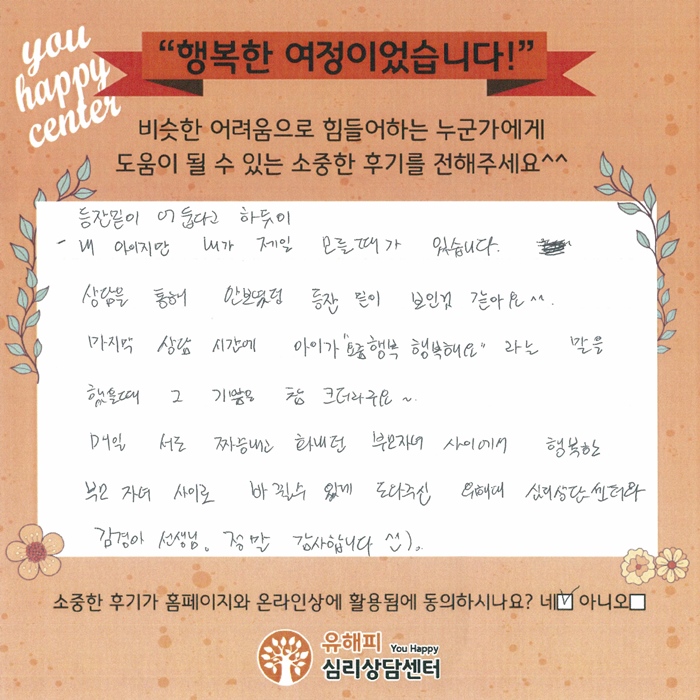 you
happy
center
“행복한 여정이었습니다!”
비슷한 어려움으로 힘들어하는 누군가에게
도움이 될 수 있는 소중한 후기를 전해주세요^^
등잔밑이 어둡다고 하듯이
- 내 아이지만 내가 제일 모를때가 있습니다.
상담을 통해 안보였던 등잔 밑이 보인것 같아요^^.
마지막 상담 시간에 아이가 "요즘행복 행복해요" 라는 말을
했을때 그 기쁨은 참 크더라구요~.
매일 서로 짜증내고 화내던 부모자녀 사이에서 행복한
부모 자녀 사이로 바뀔수 있게 도와주신 유해피 심리상담센터와
김경아 선생님. 정말 감사합니다
소중한 후기가 홈페이지와 온라인상에 활용됨에 동의하시나요? 네☑ 아니오☐
유해피 You Happy
심리상담센터